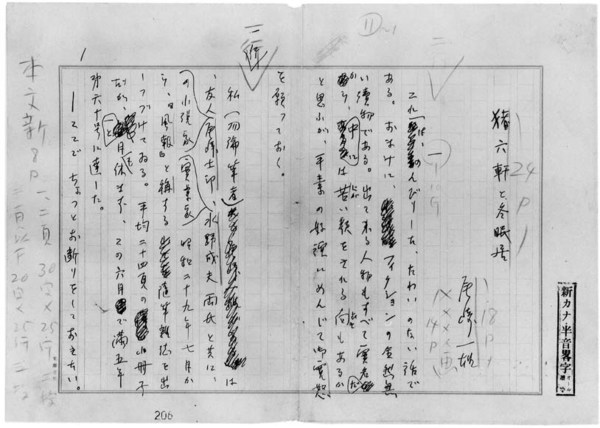 新カナ・半音畧字
猪六軒と冬眠居
24P
18P
尾崎一雄
14P
これは、のんびりした、たわいのない話で
ある。おまけに、フィクションの全然無
い読物である。出て来る人物もすべて実名だ
から、中には苦い顔をされる向もあるか
と思うが、平素の好誼にめんじて御寛恕
を願っておく。
11
私(勿論筆者)は
、友人尾崎士郎、水野成夫両氏と共に、
(小説家)(実業家)昭和二十九年七月か
ら、「風報」と称する随筆雑誌を出
しつづけてゐる。平均二十四頁の小冊子
だが、一と月も休まず、この六月で満五年
第六十号に達した。
――ここでちょっとお断りをしておきたい。
1
本文新8P 一、二頁 30字×25行 二段
三頁以下 20字×25行 三段
206